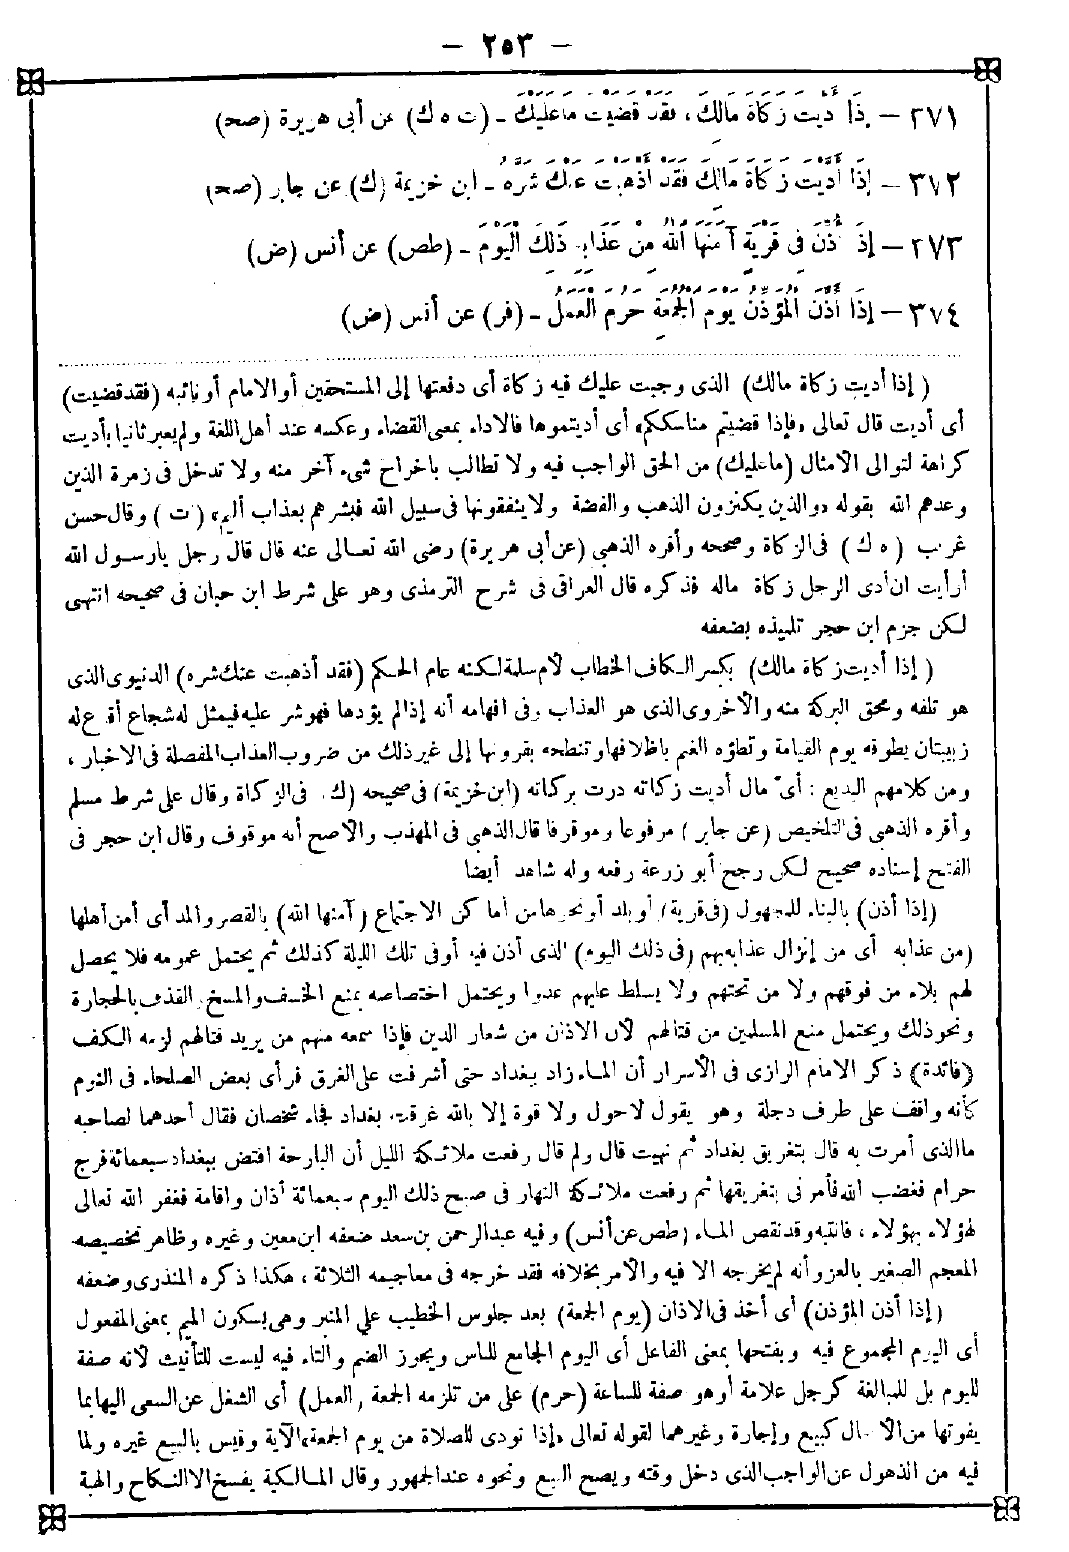 — ٢٥٣ —
٣٧١ – إِذَا أَدَّيْتَ زَكَاةَ مَالِكَ، فَقَدْ قَضَيْتَ مَا عَلَيْكَ - (ت ه ك) عن أبى هريرة (صح)
٣٧٢ – إِذَا أَدَّيْتَ زَكَاةَ مَالِكَ فَقَدْ أَذْهَبْتَ عَنْكَ شَرَّهُ - ابن خزيمة (ك) عن جابر (صح)
٣٧٣ – إِذَا أُذِّنَ فِى قَرْيَةٍ آمَنَهَا اللهُ مِنْ عَذَابِهِ ذَلِكَ الْيَوْمَ - (طص) عن أنس (ض)
٣٧٤ – إِذَا أَذَّنَ الْمُؤَذِّنُ يَوْمَ الْجُمُعَةِ حَرُمَ الْعَمَلُ - (فر) عن أنس (ض)
( إذا أديت زكاة مالك) الذى وجبت عليك فيه زكاة أى دفعتها إلى المستحقين أو الامام أو نائبه (فقد قضيت)
أى أديت قال تعالى «فإذا قضيتم مناسككم» أى أديتموها فالاداء بمعنى القضاء وعكسه عند أهل اللغة ولم يعبر ثانيا بأديت
كراهة لتوالى الأمثال (ما عليك) من الحق الواجب فيه ولا تطالب باخراج شىء آخر منه ولا تدخل فى زمرة الذين
وعدهم الله بقوله «والذين يكنزون الذهب والفضة ولا ينفقونها فى سبيل الله فبشرهم بعذاب أليم» ( ت ) وقال حسن
غريب ( ه ك ) فى الزكاة وصححه وأقره الذهبى (عن أبى هريرة) رضى الله تعالى عنه قال قال رجل يا رسول الله
أرأيت ان أدى الرجل زكاة ماله فذكره قال العراقى فى شرح الترمذى وهو على شرط ابن حبان فى صحيحه انتهى
لكن جزم ابن حجر تلميذه بضعفه
( إذا أديت زكاة مالك) بكسر الكاف الخطاب لأم سلمة لكنه عام الحكم (فقد أذهبت عنك شره) الدنيوى الذى
هو تلفه ومحق البركة منه والأخروى الذى هو العذاب وفى افهامه أنه إذا لم يؤدها فهو شر عليه فيمثل له شجاع أقرع له
زبيبتان يطوقه يوم القيامة وتطؤه الغنم باظلافها وتنطحه بقرونها إلى غير ذلك من ضروب العذاب المفصلة فى الاخبار ،
ومن كلامهم البديع : أى مال أديت زكاته درت بركاته (ابن خزيمة) فى صحيحه (ك) فى الزكاة وقال على شرط مسلم
وأقره الذهبى فى التلخيص (عن جابر) مرفوعا وموقوفا قال الذهبى فى المهذب والأصح أنه موقوف وقال ابن حجر فى
الفتح إسناده صحيح لكن رجح أبو زرعة رفعه وله شاهد أيضا
(إذا أذن) بالبناء للمجهول (فى قرية) أو بلد أو نحوها من أماكن الاجتماع (آمنها الله) بالقصر والمد أى أمن أهلها
(من عذابه) أى من إنزال عذابه بهم (فى ذلك اليوم) الذى أذن فيه أو فى تلك الليلة كذلك ثم يحتمل عمومه فلا يحصل
لهم بلاء من فوقهم ولا من تحتهم ولا يسلط عليهم عدوا ويحتمل اختصاصه بمنع الخسف والمسخ والقذف بالحجارة
ونحو ذلك ويحتمل منع المسلمين من قتالهم لأن الاذان من شعار الدين فإذا سمعه منهم من يريد قتالهم لزمه الكف
(فائدة) ذكر الامام الرازى فى الأسرار أن الماء زاد ببغداد حتى أشرفت على الغرق فرأى بعض الصلحاء فى النوم
كأنه واقف على طرف دجلة وهو يقول لا حول ولا قوة إلا بالله غرقت بغداد فجاء شخصان فقال أحدهما لصاحبه
ما الذى أمرت به قال بتغريق بغداد ثم نهيت قال ولم قال رفعت ملائكة الليل أن البارحة افتض ببغداد سبعمائة فرج
حرام فغضب الله فأمرنى بتغريقها ثم رفعت ملائكة النهار فى صبح ذلك اليوم سبعمائة أذان واقامة فغفر الله تعالى
لهؤلاء بهؤلاء ، فانتبه وقد نقص الماء (طص عن أنس) وفيه عبد الرحمن بن سعد ضعفه ابن معين وغيره وظاهر تخصيصه
المعجم الصغير بالعزو أنه لم يخرجه الا فيه والأمر بخلافه فقد خرجه فى معاجيمه الثلاثة ، هكذا ذكره المنذرى وضعفه
(إذا أذن المؤذن) أى أخذ فى الاذان (يوم الجمعة) بعد جلوس الخطيب على المنبر وهى بسكون الميم بمعنى المفعول
أى اليوم المجموع فيه وبفتحها بمعنى الفاعل أى اليوم الجامع للناس ويجوز الضم والتاء فيه ليست للتأنيث لأنه صفة
لليوم بل للمبالغة كرجل علامة أو هو صفة للساعة (حرم) على من تلزمه الجمعة (العمل) أى الشغل عن السعى اليها بما
يفوتها من الأعمال كبيع وإجارة وغيرهما لقوله تعالى «إذا نودى للصلاة من يوم الجمعة» الآية وقيس بالبيع غيره ولما
فيه من الذهول عن الواجب الذى دخل وقته ويصح البيع ونحوه عند الجمهور وقال المالكية يفسخ الا النكاح والهبة